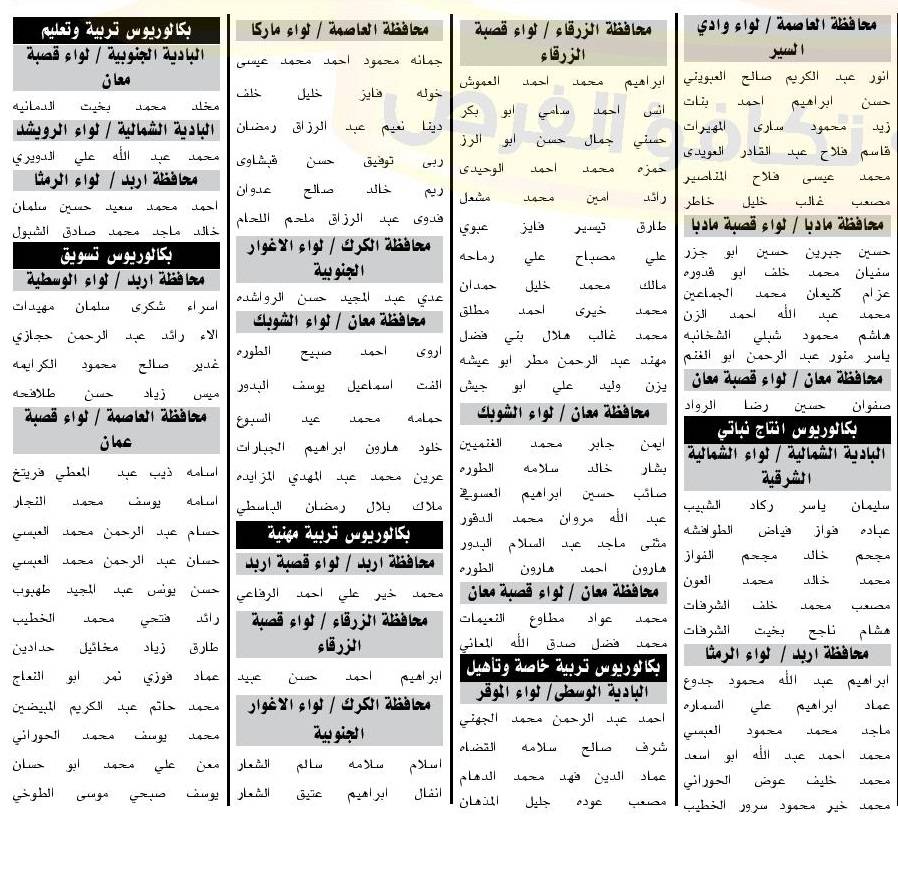 محافظة العاصمة / لواء وادي
السير
انور عبد الكريم صالح العبويني
حسن ابراهيم احمد بنات
زيد محمود ساري المهيرات
قاسم فلاح عبد القادر العويدي
محمد عيسى فلاح المناصير
مصعب غالب خليل خاطر
محافظة مادبا / لواء قصبة مادبا
حسين جبرين حسين ابو جزر
سفيان محمد خلف ابو قدوره
عزام كنيعان محمد الجماعين
محمد عبد الله أحمد الزن
هاشم محمود شبلي الشخانبه
ياسر منور عبد الرحمن ابو الغنم
محافظة معان / لواء قصبة معان
صفوان حسين رضا الرواد
بكالوريوس انتاج نباتي
البادية الشمالية / لواء الشمالية
الشرقية
سليمان ياسر ركاد الشبيب
عباده فواز فياض الطوافشه
مجحم خالد مجحم الفواز
محمد خالد محمد العون
مصعب محمد خلف الشرفات
هشام ناجح بخيت الشرفات
محافظة اربد / لواء الرمثا
ابراهيم عبد الله محمود جدوع
عماد ابراهيم علي السماره
ماجد محمد محمود العبسي
محمد احمد عبد الله ابو اسعد
محمد خليف عوض الحوراني
محمد خير محمود سرور الخطيب
محافظة الزرقاء / لواء قصبة
الزرقاء
ابراهيم محمد احمد العموش
انس احمد سامي ابو بكر
حسني جمال حسن ابو الرز
حمزه محمد احمد الوحيدى
رائد امين محمد مشعل
طارق تيسير فايز عبوي
علي مصباح علي رماحه
مالك محمد خليل حمدان
محمد خيرى احمد مطلق
محمد غالب هلال بني فضل
مهند عبد الرحمن مطر ابو عيشه
يزن وليد علي ابو جيش
محافظة معان / لواء الشوبك
ايمن جابر محمد الغنميين
بشار خالد سلامه الطوره
صائب حسين ابراهيم العسوفي
عبد الله مروان محمد الدقور
مثنى ماجد عبد السلام البدور
هارون احمد هارون الطوره
محافظة معان / لواء قصبة معان
محمد عواد مطاوع النعيمات
محمد فضل صدق الله المعاني
بكالوريوس تربية خاصة وتأهيل
البادية الوسطى/ لواء الموقر
احمد عبد الرحمن محمد الجهني
شرف صالح سلامه القضاه
عماد الدين فهد محمد الدهام
مصعب عوده جليل المذهان
محافظة العاصمة / لواء ماركا
جمانه محمود احمد محمد عيسى
خوله فايز خليل خلف
دينا نعيم عبد الرزاق رمضان
ربى توفيق حسن قبشاوى
ريم خالد صالح عدوان
فدوى عبد الرزاق ملحم اللحام
محافظة الكرك / لواء الاغوار
الجنوبية
عدي عبد المجيد حسن الرواشده
محافظة معان / لواء الشوبك
اروى احمد صبيح الطوره
الفت اسماعيل يوسف البدور
حمامه محمد عيد السبوع
خلود هارون ابراهيم الجبارات
عرين محمد عبد المهدي المزايده
ملاك بلال رمضان الباسطي
بكالوريوس تربية مهنية
محافظة اربد / لواء قصبة اربد
محمد خير علي احمد الرفاعي
محافظة الزرقاء / لواء قصبة
الزرقاء
ابراهيم احمد حسن عبيد
محافظة الكرك / لواء الاغوار
الجنوبية
اسلام سلامه سالم الشعار
انفال ابراهيم عتيق الشعار
بكالوريوس تربية وتعليم
البادية الجنوبية / لواء قصبة
معان
مخلد محمد بخيت الدمانيه
البادية الشمالية / لواء الرويشد
محمد عبد الله علي الدويري
محافظة اربد / لواء الرمثا
احمد محمد سعيد حسين سلمان
خالد ماجد محمد صادق الشبول
بكالوريوس تسويق
محافظة اربد / لواء الوسطية
اسراء شكرى سلمان مهيدات
الاء رائد عبد الرحمن حجازي
غدير صالح محمود الكرايمه
ميس زياد حسن طلافحه
محافظة العاصمة / لواء قصبة
عمان
اسامه ذيب عبد المعطي فريتخ
اسامه يوسف محمد النجار
حسام عبد الرحمن محمد العبسي
حسان عبد الرحمن محمد العبسي
حسن يونس عبد المجيد طهبوب
رائد فتحي محمد الخطيب
طارق زياد مخائيل حدادين
عماد فوزي نمر ابو النعاج
محمد حاتم عبد الكريم المبيضين
محمد يوسف محمد الحوراني
معن علي محمد ابو حسان
يوسف صبحي موسى الطوخي
تكافؤ الفرص